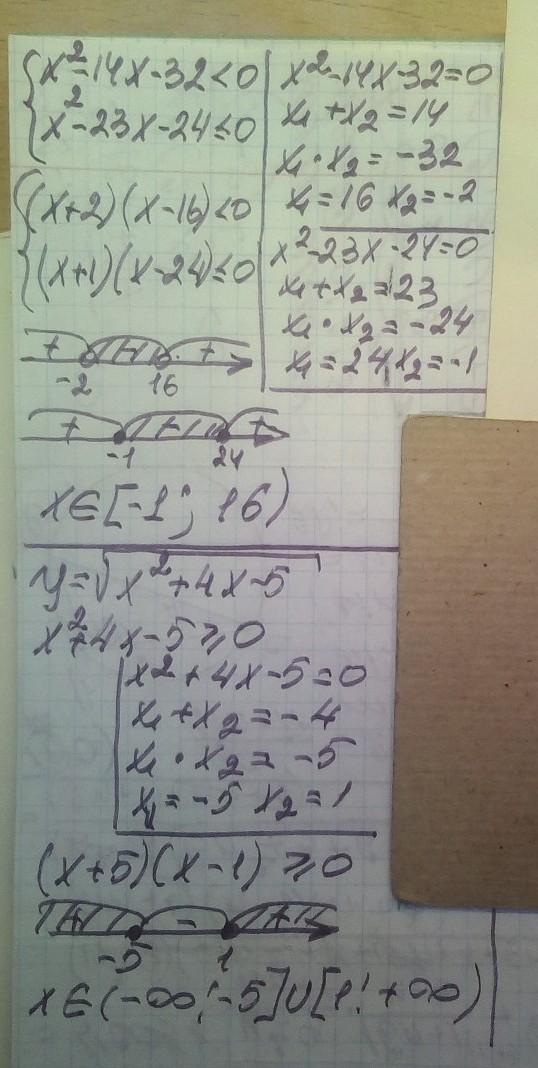 x²-14x-32<0
x²-23x-24≤0
(x+2)(x-16)<0
(x+1)(x-24)≤0
x²-14x-32=0
x₁+x₂=14
x₁·x₂=-32
x₁=16 x₂=-2
x²-23x-24=0
x₁+x₂=23
x₁·x₂=-24
x₁=24, x₂=-1
+ +
-2 16
+ +
-1 24
x∈[-1; 16)
y=√x²+4x-5
x²+4x-5≥0
x²+4x-5=0
x₁+x₂=-4
x₁·x₂=-5
x₁=-5 x₂=1
(x+5)(x-1)≥0
+ - +
-5 1
x∈(-∞;-5]∪[1;+∞)